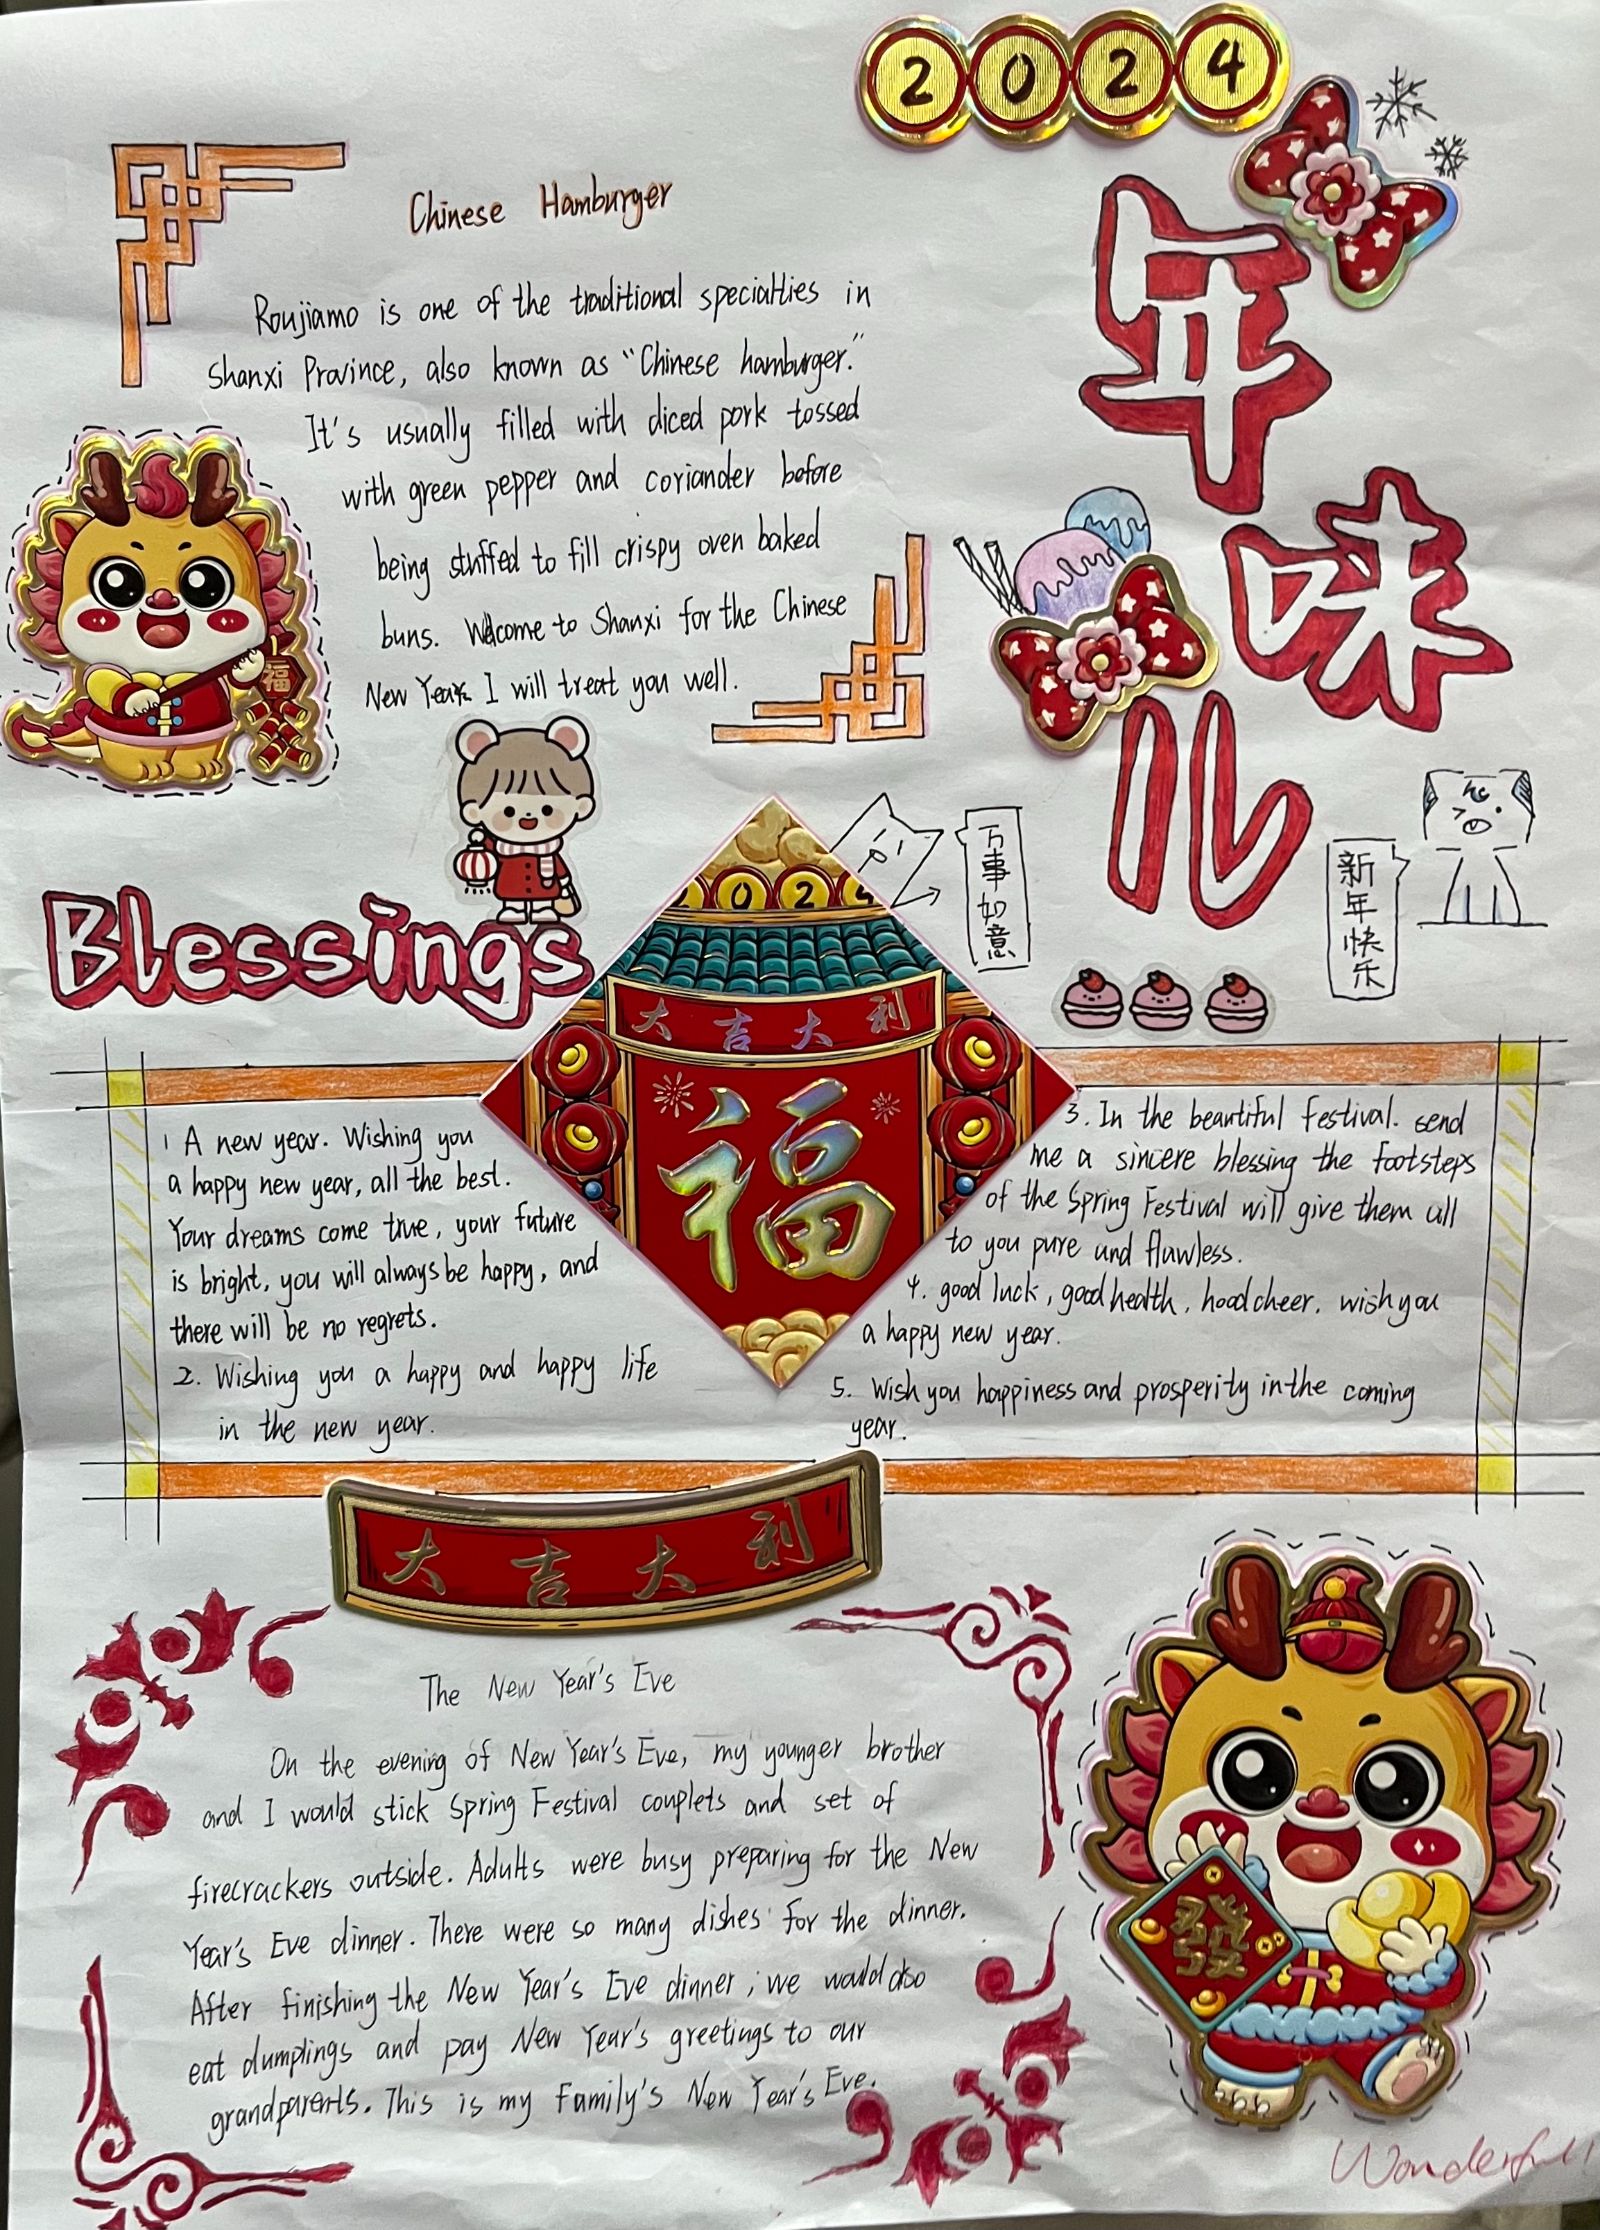 2024
年味儿
Chinese Hamburger
Roujiamo is one of the traditional specialties in
Shanxi Province, also known as "Chinese hamburger."
It's usually filled with diced pork tossed
with green pepper and coriander before
being stuffed to fill crispy oven baked
buns. Welcome to Shanxi for the Chinese
New Year. I will treat you well.
福
万事如意
新年快乐
Blessings
2024
大吉大利
福
1 A new year. Wishing you
a happy new year, all the best.
Your dreams come true, your future
is bright, you will always be happy, and
there will be no regrets.
2. Wishing you a happy and happy life
in the new year.
3. In the beautiful festival. send
me a sincere blessing the footsteps
of the Spring Festival will give them all
to you pure and flawless.
4. good luck, good health, hood cheer. wish you
a happy new year.
5. Wish you happiness and prosperity in the coming
year.
大吉大利
The New Year's Eve
On the evening of New Year's Eve, my younger brother
and I would stick Spring Festival couplets and set of
firecrackers outside. Adults were busy preparing for the New
Year's Eve dinner. There were so many dishes for the dinner.
After finishing the New Year's Eve dinner, we would also
eat dumplings and pay New Year's greetings to our
grandparents. This is my Family's New Year's Eve.
發
Wonderful!